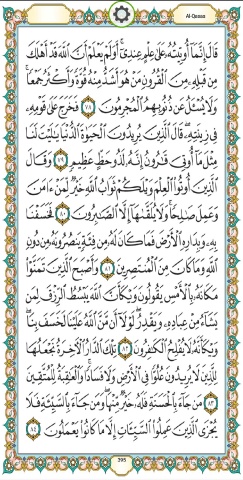 Al-Qasas
قَالَ إِنَّمَا أُوتِيتُهُ عَلَىٰ عِلْمٍ عِندِي أَوَلَمْ يَعْلَمْ أَنَّ اللَّهَ قَدْ أَهْلَكَ
مِن قَبْلِهِ مِنَ الْقُرُونِ مَنْ هُوَ أَشَدُّ مِنْهُ قُوَّةً وَأَكْثَرُ جَمْعًا
وَلَا يُسْأَلُ عَن ذُنُوبِهِمُ الْمُجْرِمُونَ ٧٨ فَخَرَجَ عَلَىٰ قَوْمِهِ
فِي زِينَتِهِ قَالَ الَّذِينَ يُرِيدُونَ الْحَيَاةَ الدُّنْيَا يَالَيْتَ لَنَا
مِثْلَ مَا أُوتِيَ قَارُونُ إِنَّهُ لَذُو حَظٍّ عَظِيمٍ ٧٩ وَقَالَ
الَّذِينَ أُوتُوا الْعِلْمَ وَيْلَكُمْ ثَوَابُ اللَّهِ خَيْرٌ لِّمَنْ ءَامَنَ
وَعَمِلَ صَالِحًا وَلَا يُلَقَّاهَا إِلَّا الصَّابِرُونَ ٨٠ فَخَسَفْنَا
بِهِ وَبِدَارِهِ الْأَرْضَ فَمَا كَانَ لَهُ مِن فِئَةٍ يَنصُرُونَهُ مِن دُونِ
اللَّهِ وَمَا كَانَ مِنَ الْمُنتَصِرِينَ ٨١ وَأَصْبَحَ الَّذِينَ تَمَنَّوْا
مَكَانَهُ بِالْأَمْسِ يَقُولُونَ وَيْكَأَنَّ اللَّهَ يَبْسُطُ الرِّزْقَ لِمَن
يَشَاءُ مِنْ عِبَادِهِ وَيَقْدِرُ لَوْلَا أَن مَّنَّ اللَّهُ عَلَيْنَا لَخَسَفَ بِنَا
وَيْكَأَنَّهُ لَا يُفْلِحُ الْكَافِرُونَ ٨٢ تِلْكَ الدَّارُ الْآخِرَةُ نَجْعَلُهَا
لِلَّذِينَ لَا يُرِيدُونَ عُلُوًّا فِي الْأَرْضِ وَلَا فَسَادًا وَالْعَاقِبَةُ لِلْمُتَّقِينَ
٨٣ مَن جَاءَ بِالْحَسَنَةِ فَلَهُ خَيْرٌ مِّنْهَا وَمَن جَاءَ بِالسَّيِّئَةِ فَلَا
يُجْزَى الَّذِينَ عَمِلُوا السَّيِّئَاتِ إِلَّا مَا كَانُوا يَعْمَلُونَ ٨٤
395